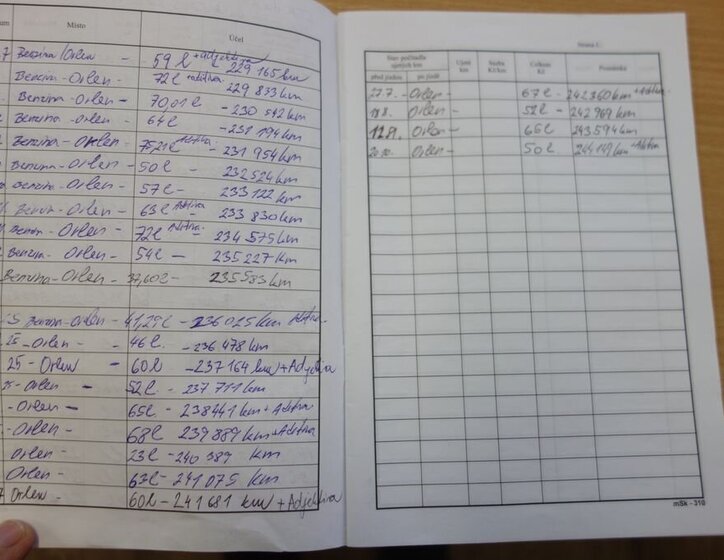 um Místo Účel
7 Benzina/Orlen - 59 l - 229 165 km
Benzina-Orlen - 72 l - 229 833 km
Benzina-Orlen - 70,01 l - 230 542 km
Benzina-Orlen - 64 l - 231 194 km
Benzina-Orlen - l Aditiva - 231 954 km
Benzina-Orlen - 50 l - 232 524 km
Benzina-Orlen - 57 l - 233 122 km
Benzin-Orlen - 63 l Aditiva - 233 830 km
Benzin-Orlen - 72 l Aditiva - 234 575 km
Benzin-Orlen - 54 l - 235 227 km
Benzina-Orlen - 37,60 l - 235 583 km
Benzina-Orlen - 41,29 l - 236 025 km
25 -Orlen - 46 l - 236 478 km
25 - Orlen - 60 l - 237 164 km +
25 -Orlen - 52 l - 237 711 km
-Orlen - 65 l - 238 441 km + Aditiva
-Orlen - 68 l 239 889 km + Aditiva
Orlen - 23 l - 240 389 km
Orlen - 63 l - 241 075 km
7 Orlen - 60 l - 241 681 km +
Strana č.
Stav počítadla ujetých km
před jízdou po jízdě
Ujeto km
Sazba Kč/km
Celkem Kč
Poznámka
27.7. -Orlen- 67 l - 242 360 km
-Orlen- 52 l - 242 969 km
-Orlen- 66 l - 243 594 km
-Orlen- 50 l - 244 149 km + Aditiva
mSk - 310